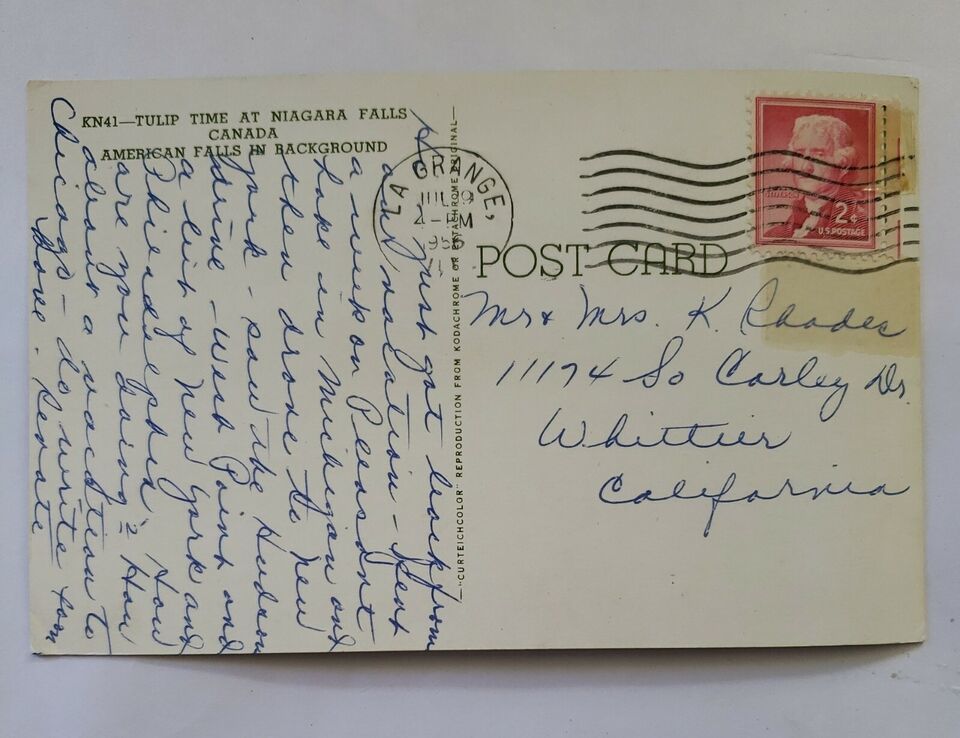 KN41—TULIP TIME AT NIAGARA FALLS
CANADA
AMERICAN FALLS IN BACKGROUND
just got back from
our vacation - spent
a week on Pleasant
Lake in Michigan and
then drove to New
York - saw the Hudson
drive - West Point and
a bit of New York and
Philadelphia. How
are you doing? How
about a vacation to
Chicago - do write soon
Love - Renate
"CURTEICHCOLOR" REPRODUCTION FROM KODACHROME OR EKTACHROME ORIGINAL
LA GRANGE,
JUL 9
4-PM
POST CARD
JEFFERSON
2¢
U.S. POSTAGE
Mr & Mrs. K. Rhodes
11174 So Carley Dr.
Whittier
California